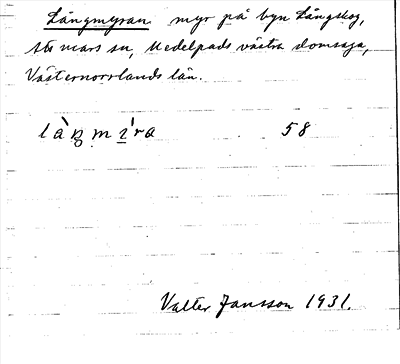 Långmyran myr på byn Långskog,
Stömars sn, Medelpads västra domsaga,
Västernorrlands län.
58
Valter Jansson 1931.